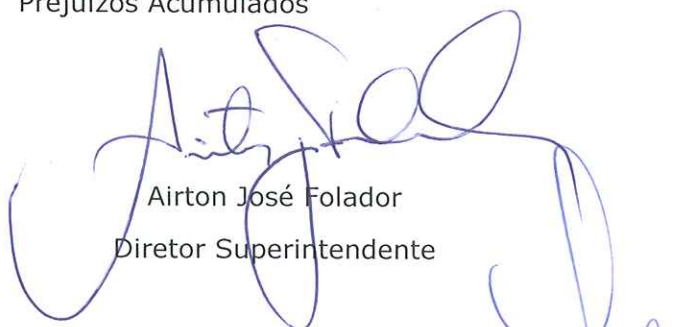 Prejuízos Acumulados
Airton José Folador
Diretor Superintendente